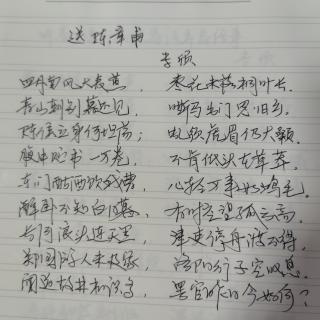 送陈章甫
李颀
四月南风大麦黄，枣花未落桐叶长。
青山朝别暮还见，嘶马出门思旧乡。
陈侯立身何坦荡；虬须虎眉仍大颡。
腹中贮书一万卷，不肯低头在草莽。
东门酤酒饮我曹，心轻万事如鸿毛。
醉卧不知白日暮，有时空望孤云高。
长河浪头连天黑，津吏停舟渡不得。
郑国游人未及家，洛阳行子空叹息。
闻道故林相识多，罢官昨日今如何？